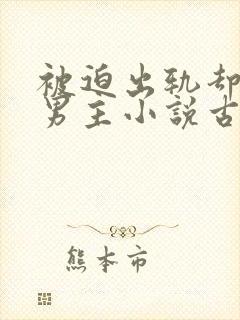 被迫出轨却
男主小説古
熊本市